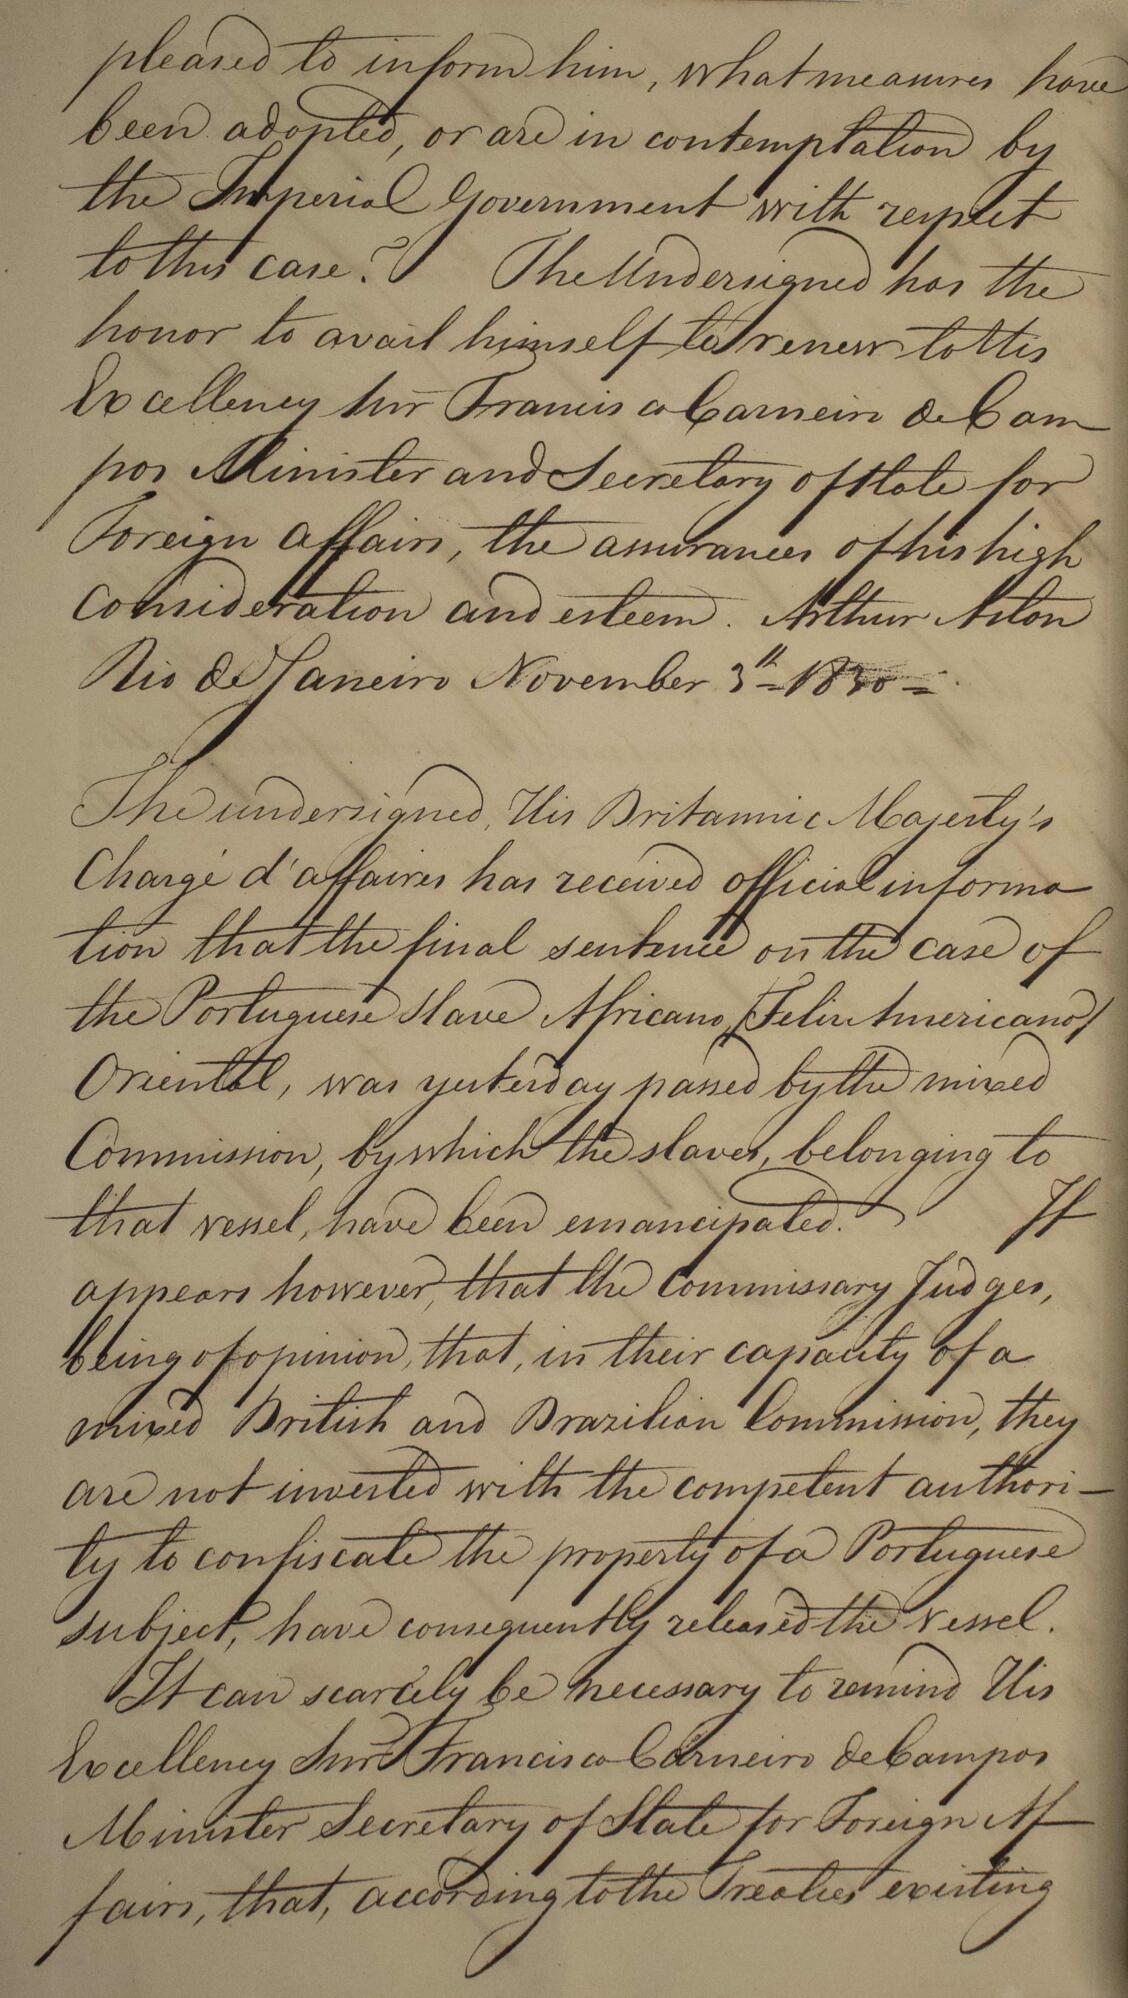 pleased to inform him, what measures have
been adopted, or are in contemplation by
the Imperial Government with respect
to this case? The Undersigned has the
honor to avail himself to renew to His
Excellency Snr Francisco Carneiro de Cam
pos Minister and Secretary of State for
Foreign affairs, the assurances of his high
consideration and esteem. Arthur Aston
Rio de Janeiro November 3th 1830 =
The undersigned, His Britannic Majesty's
Chargé d'affaires has received official informa
tion that the final sentence on the case of
the Portuguese Slave Africano, (Felix Americano)
Oriental, was yesterday passed by the mixed
Commission, by which the slaves, belonging to
that vessel, have been emancipated. It
appears however, that the Commissary Judges,
being of opinion, that, in their capacity of a
mixed British and Brazilian Commission, they
are not invested with the competent authori-
ty to confiscate the property of a Portuguese
subject, have consequently released the vessel.
It can scarcely be necessary to remind His
Excellency Snr Francisco Carneiro de Campos
Minister Secretary of State for Foreign Af
fairs, that, according to the Treaties existing